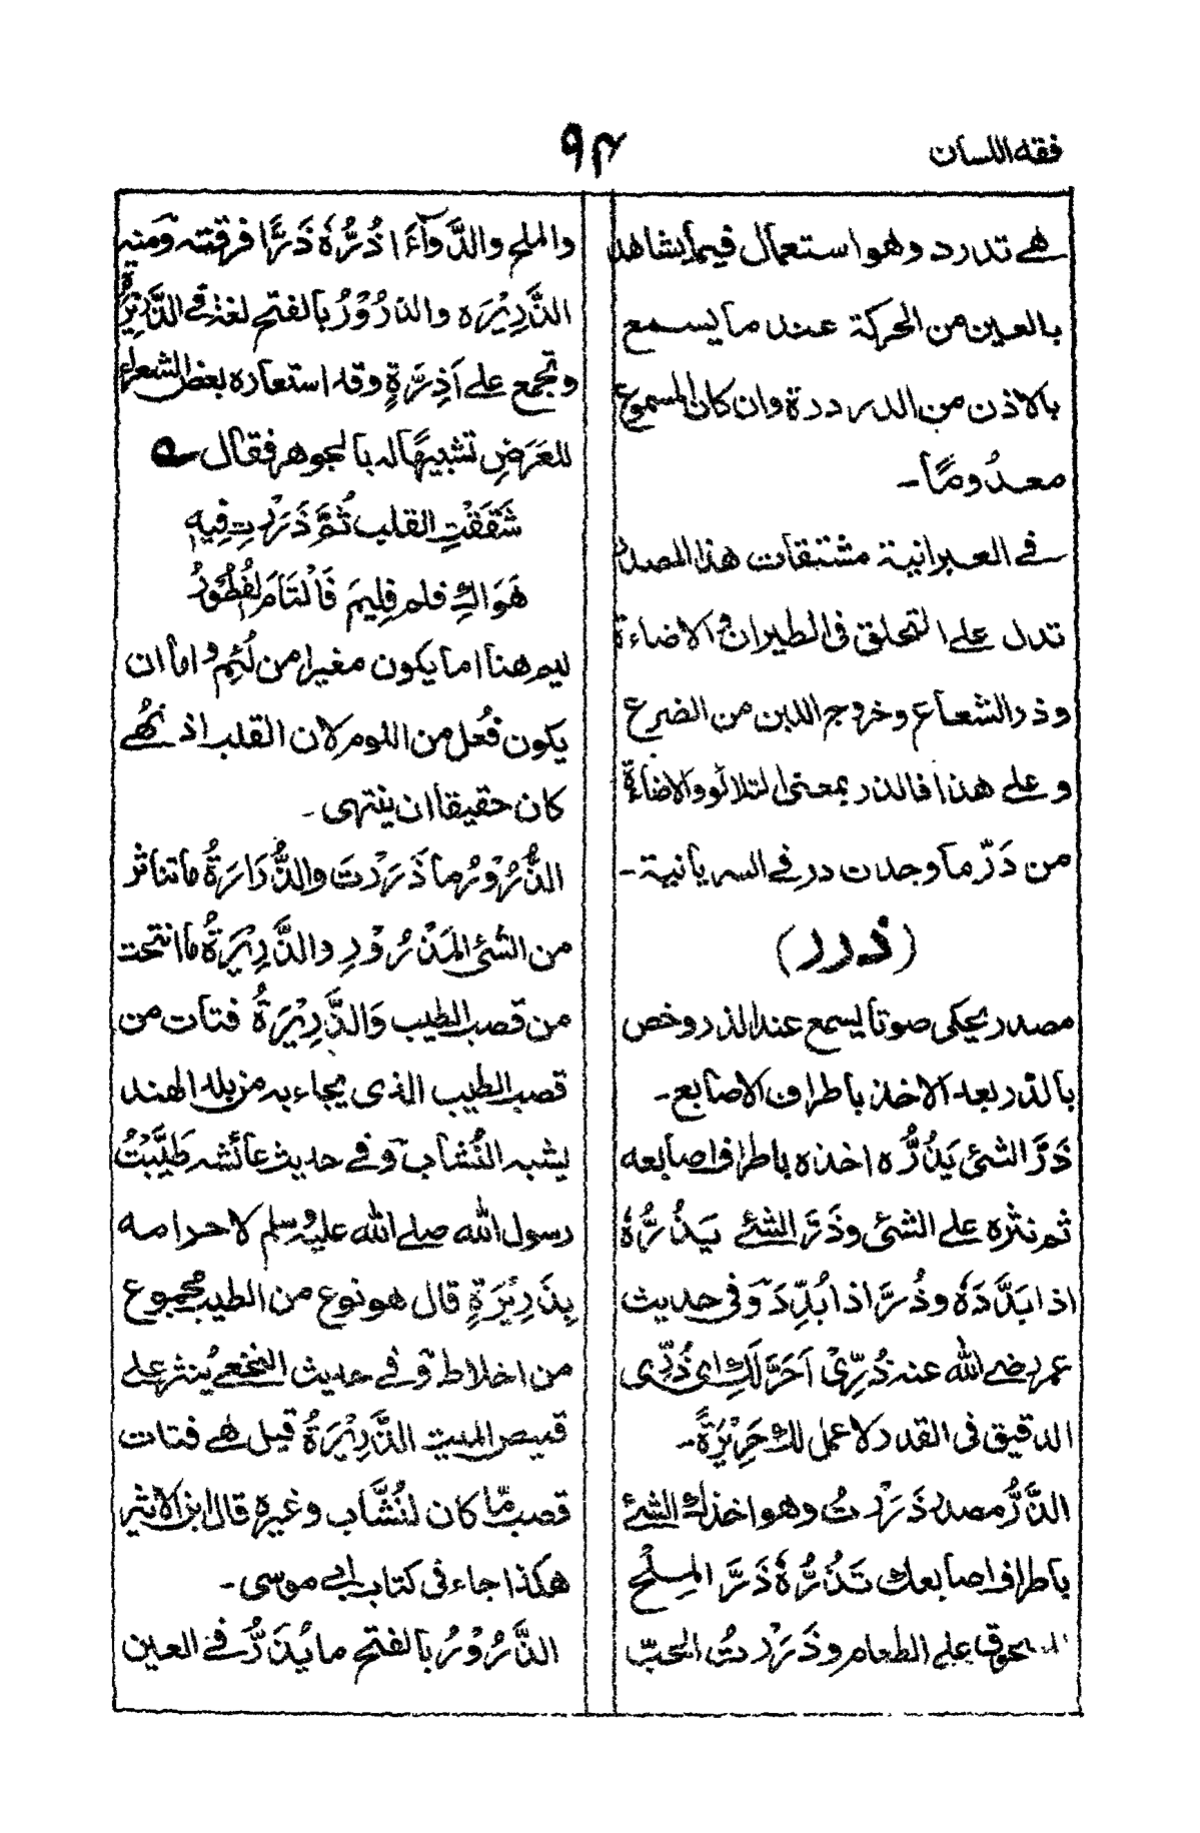 فقه اللسان
٩٤
هے تدردر وهو استعمال فیما یشاهد
بالعین من الحركة عند ما یسمع
بالاذن من الدردرة وان كان المسموع
معدُومًا۔
فے العبرانیة مشتقات هذا المصدر
تدل علے التحلق فی الطیران و الاضاءة
وذر الشعاع وخروج اللبن من الضرع
وعلے هذا فالذر بمعنی التلألؤ والاضاءة
من دَرّ ما وجدت در فے السریانیة۔
(ذرر)
مصدر یحكی صوتا یسمع عند الذر وخص
بالذر بعد الاخذ باطراف الاصابع۔
ذَرَّ الشئ یَذُرُّہ اخذہ باطراف اصابعه
ثم نثرہ علے الشئ وذَرَّ الشئے یَذُرُّہٗ
اذا بَدَّدَہٗ وذُرَّ اذا بُدِّدَ وفی حدیث
عمر رضے الله عنه ذُرِّیْ اَحَرَّ لَكِ ای ذُرِّی
الدقیق فی القدر لاعمل لك حَرِیْرَةً۔
الذَّرُّ مصدر ذَرَرْتُ وهو اخذك الشئے
باطراف اصابعك تَذُرُّہٗ ذَرَّ المِلْحِ
المسحوق علے الطعام وذَرَرْتُ الحَبَّ
والملح والدَّوآءَ اَذُرُّہٗ ذَرًّا فرقتہ ومنہ
الذَّرِیْرَہ والذَرُوْرُ بالفتح لغة فے الذَّرِیْرَةِ
وتجمع علے اَذِرَّةٍ وقد استعارہ بعض الشعراء
للعَرَضِ تشبیهًا له بالجوهر فقال ؎
شَقَقْتِ القلب ثُمَّ ذَرَرْتِ فِیهِ
هَوَاكِ فلم فلِیمَ فَالْتَامَ الفُطُورُ
لیم هنا اما یكون مغیرا من لُئِم و اما ان
یكون فُعل من اللوم لان القلب اذ نُهے
كان حقیقا ان ینتهی۔
الذَّرُوْرُ ما ذَرَرْتَ والذُّرَارَةُ ما تناثر
من الشئ المَذْرُوْرِ والذَّرِیْرَةُ ما انتحت
من قصب الطیب وَالذَّرِیْرَةُ فتات من
قصب الطیب الذی یجاء به من بلد الهند
یشبه النُشاب وفے حدیث عائشه طَیَّبْتُ
رسول الله صلے الله علیہ وسلم لاحرامه
بِذَرِیْرَةٍ قال هو نوع من الطیب مجموع
من اخلاط وفے حدیث النخعے یُنثر علے
قمیص المیت الذَّرِیْرَةُ قیل هے فتات
قصب مّا كان لنُشَّاب وغیرہ قال ابن الاثیر
هكذا جاء فی كتاب ابے موسی۔
الذَّرُوْرُ بالفتح ما یُذَرُّ فے العین